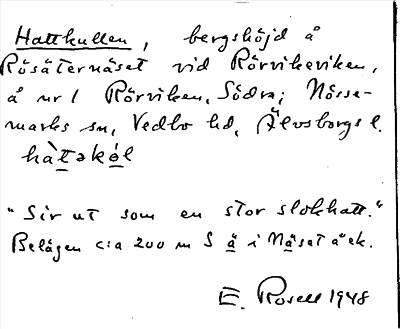 Hattkullen, bergshöjd å
Rösäternäset vid Rörvikeviken,
å nr 1 Rörviken, Södra; Nösse-
marks sn, Vedbo hd, Älvsborgs l.
hàt̲əkó̲l
"Ser ut som en stor slokhatt."
Belägen c:a 200 m S ä i Näset äek.
E. Rosell 1948